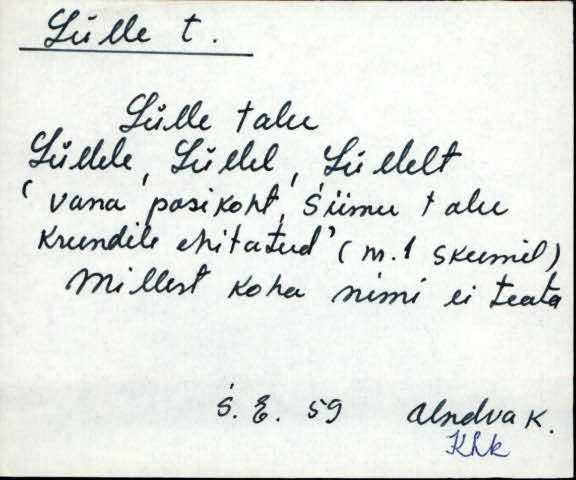 Sülle t.
Sülle talu
Süllele, Süllel, Süllelt
'vana pasikoht, Siimu talu
krundile ehitatud' (m. 1 skeemil)
Millest koha nimi ei teata
S. E. 59 Alndva k.
Khk